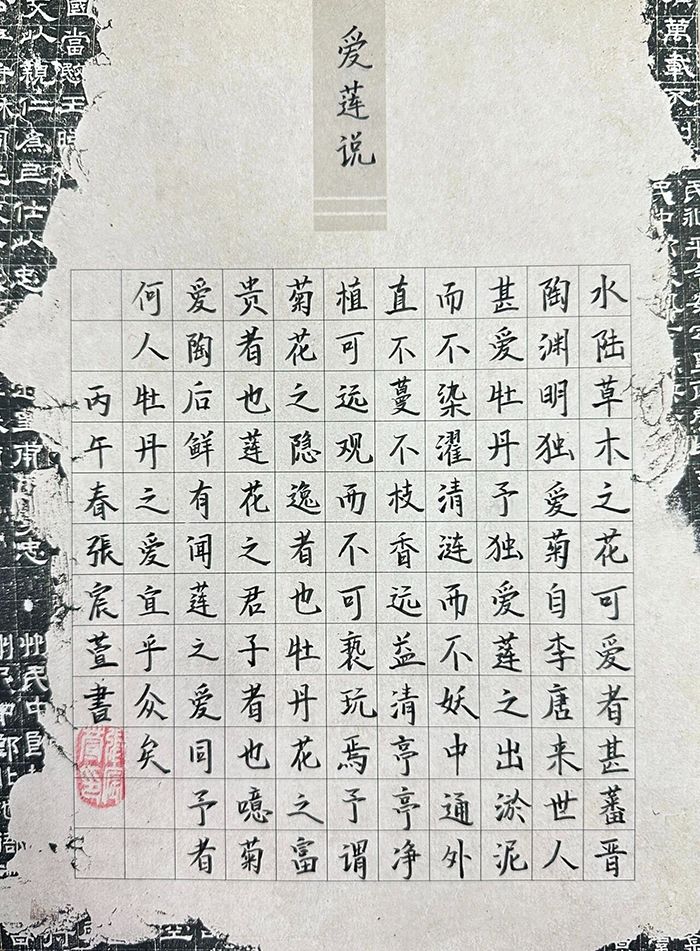 爱莲说
水陆草木之花可爱者甚蕃晋
陶渊明独爱菊自李唐来世人
甚爱牡丹予独爱莲之出淤泥
而不染濯清涟而不妖中通外
直不蔓不枝香远益清亭亭净
植可远观而不可亵玩焉予谓
菊花之隐逸者也牡丹花之富
贵者也莲花之君子者也噫菊
爱陶后鲜有闻莲之爱同予者
何人牡丹之爱宜乎众矣
丙午春張宸萱書